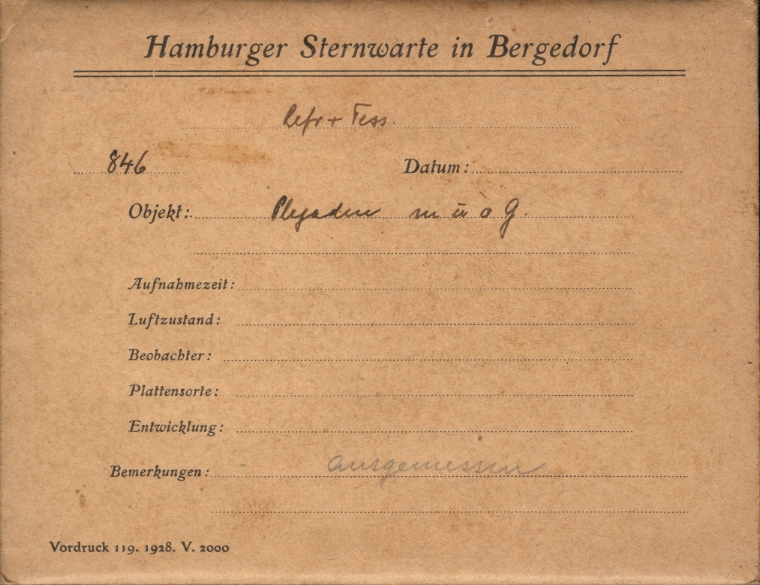 Hamburger Sternwarte in Bergedorf
Refr + Tess.
846 Datum:
Objekt: Plejaden m u o G.
Aufnahmezeit:
Luftzustand:
Beobachter:
Plattensorte:
Entwicklung:
Bemerkungen: ausgemessen
Vordruck 119. 1928. V. 2000